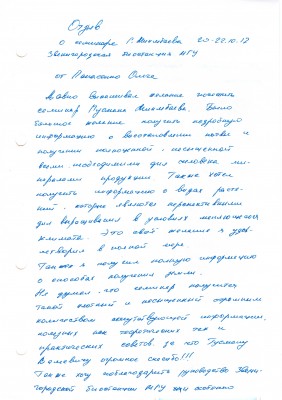 Отзыв
о семинаре Р. 20-22.10.12
Звенигородская биостанция МГУ
от Олега
Давно вынашивал желание посетить
семинар Руслана Было
большое желание получить подробную
информацию о восстановлении почвы и
получении полноценной, насыщенной
всеми необходимыми для человека ми-
нералами продукции. Также хотел
получить информацию о видах расте-
ний, которые являются перспективными
для выращивания в условиях меняющегося
климата. Это своё желание я удов-
летворил в полной мере.
Также я получил полную информацию
о способах получения
Не думал, что семинар получится
такой ёмкий и насыщенный огромным
количеством сопутствующей информации,
полезных как теоретических так и
практических советов за что Руслану
огромное спасибо!!!
Также хочу поблагодарить руководство Звени-
городской биостанции МГУ особенно